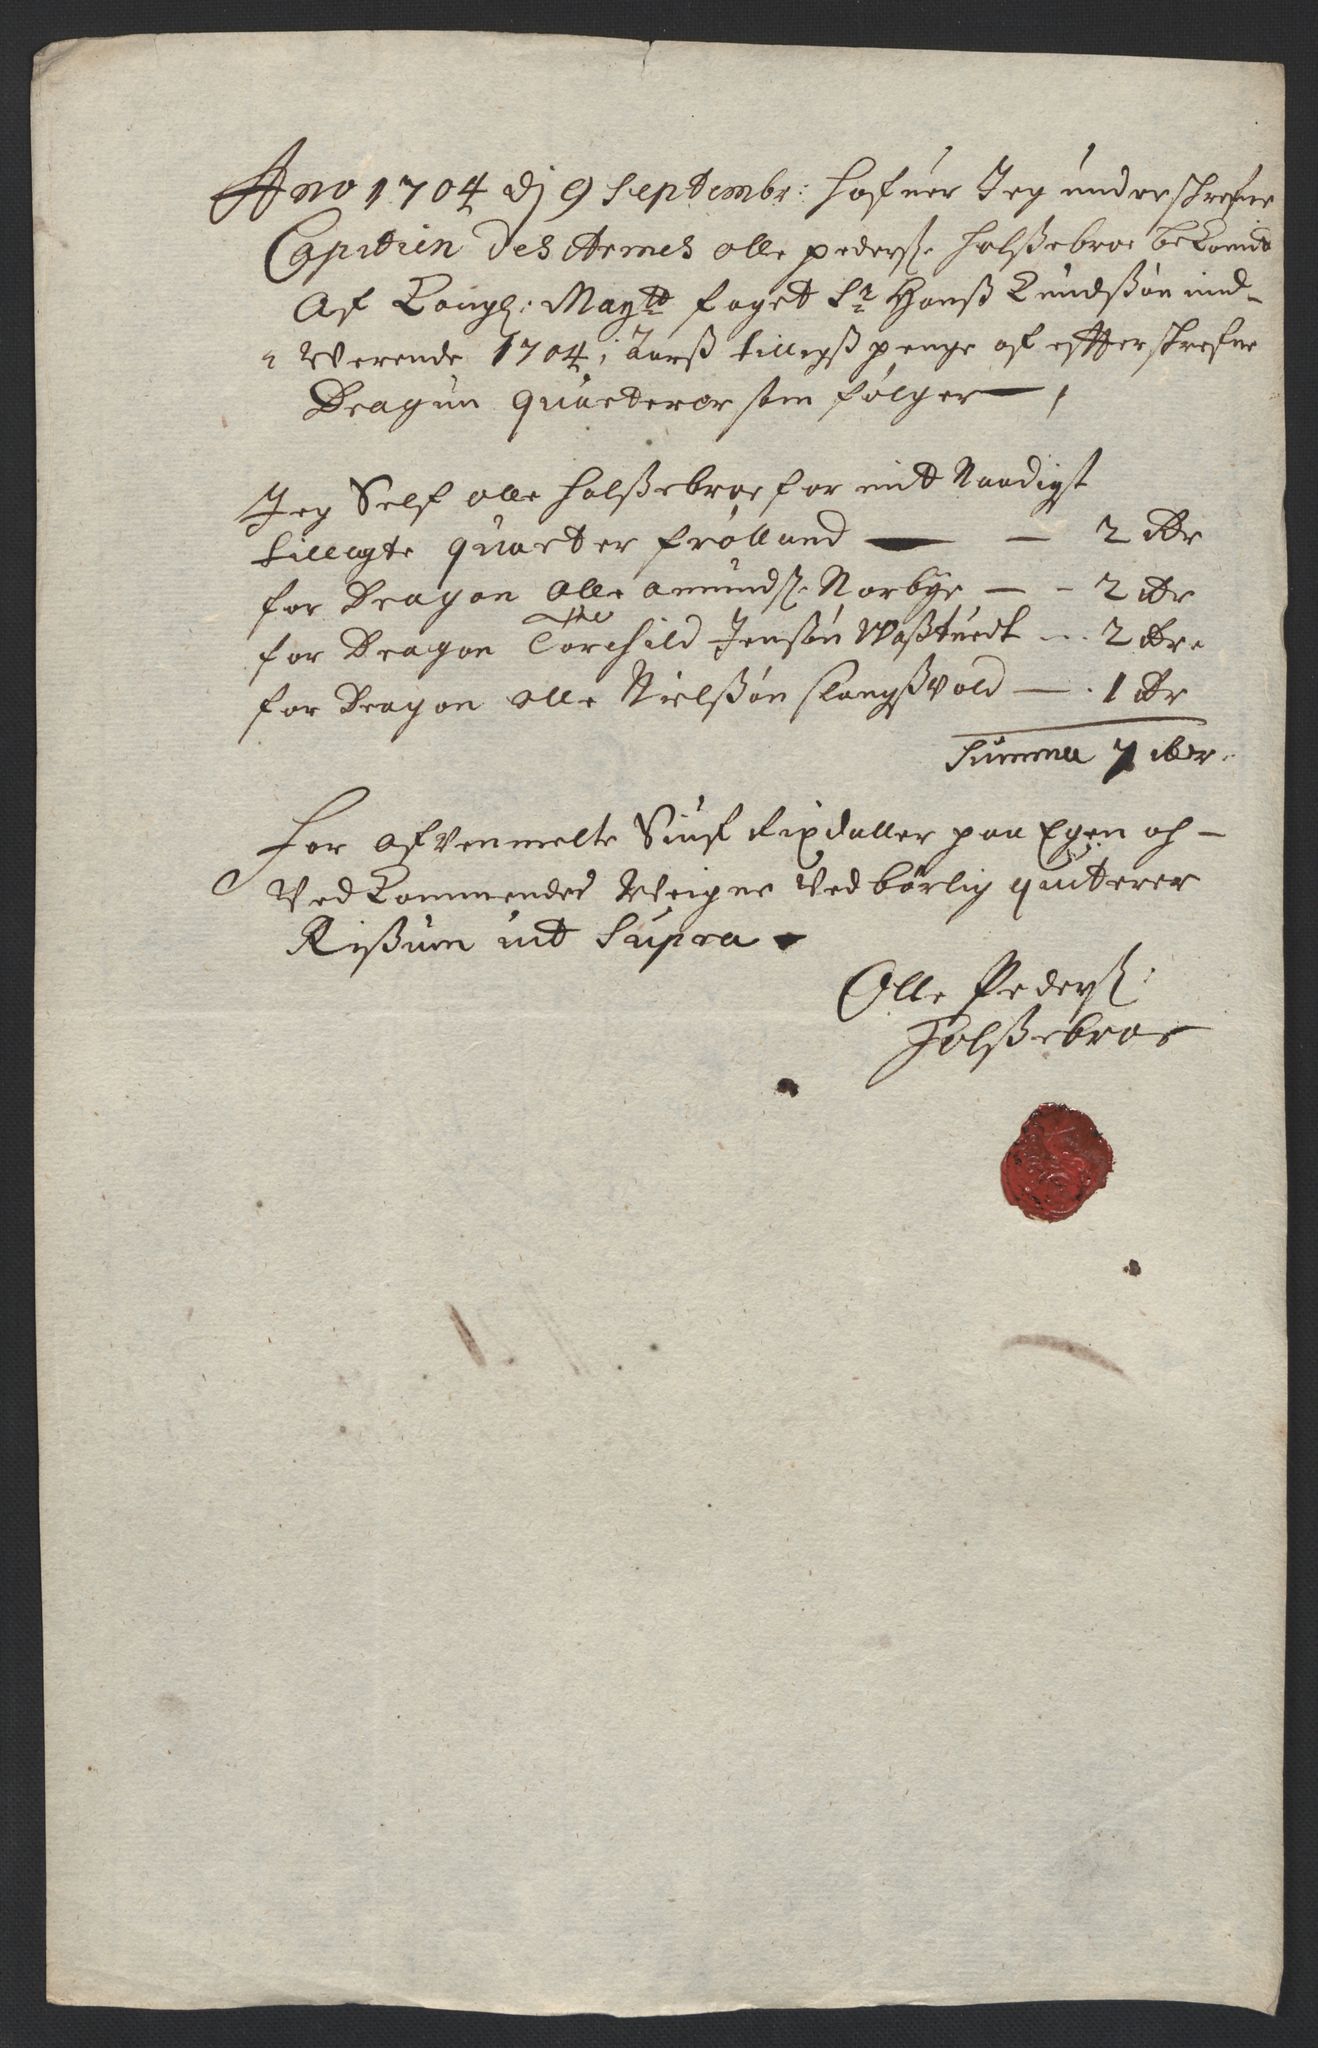 Ano 1704 dj 9 Septembr: hafuer Jeg underschrefne
Capitien des Armes olle pederß: Holßebroe bekomit
Af Kongl: Maytts foget Sr Hanß Knudßøn ind-
werende 1704 i Aarß tillegß penge af effterschrefne
Dragun quarterer som følger
Jeg Self olle Holßebroe for mit Naadigst
tillagte quarter Frølland — — 2 Rdr
for Dragon olle Amundß: Norbye — - 2 Rdr
for Dragon Torchild Jensøn Waßtuedt - 2 Rdr
for Dragon olle Nielßøn Slangßvold — 1 Rdr
Summa 7 Rdr
For afvenmelte Siuf Rixdaller paa Egen och -
Vedkommendes Weigne Vedbørlig quiterer
Rißum ut Supra
Olle Pederß:
Holßebroe